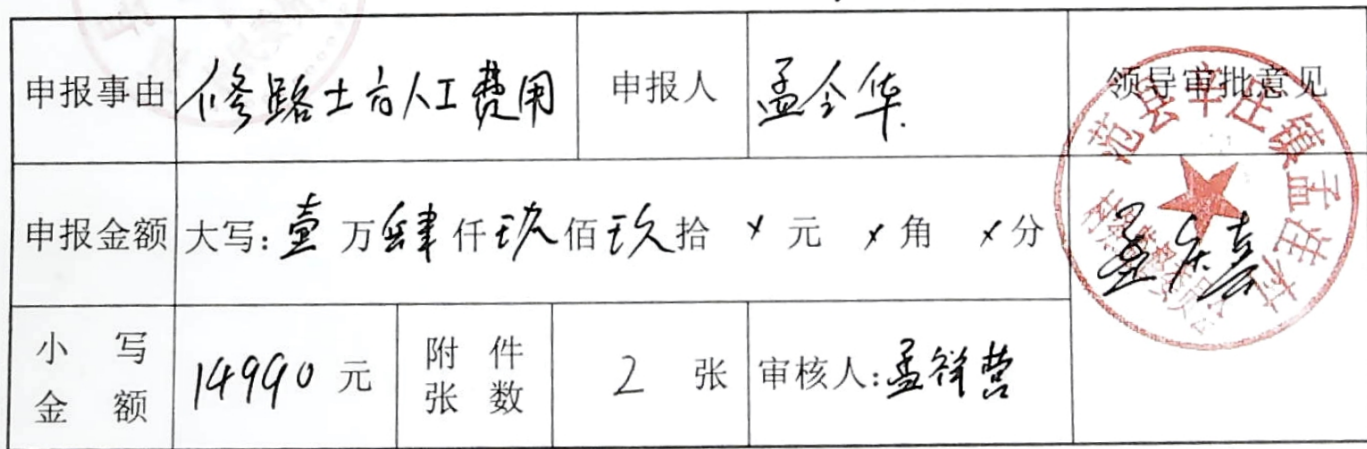 申报事由 修路土方人工费用 申报人 孟令华 领导审批意见
申报金额 大写: 壹 万 肆 仟 玖 佰 玖 拾 × 元 × 角 × 分
小写金额 14990 元 附件张数 2 张 审核人: 孟祥营
孟庆喜
范县辛庄镇孟庄村